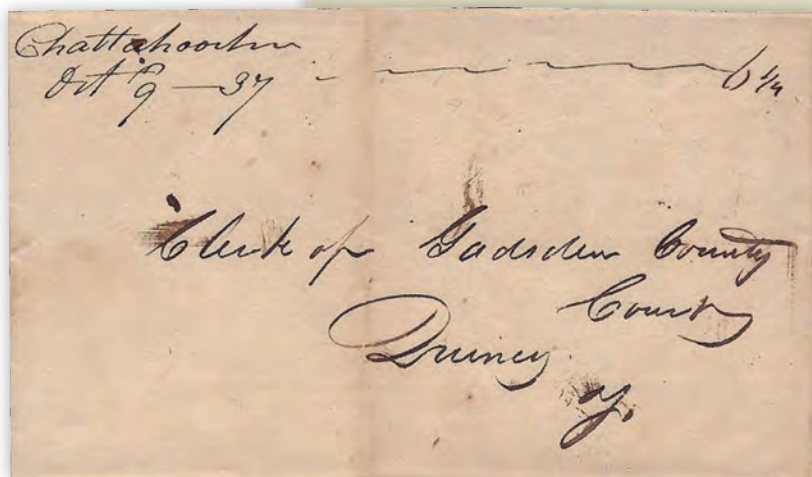 Chattahoochee
Oct 9 — 37 6 1/4
Clerk of Gadsden County
Court
Quincy